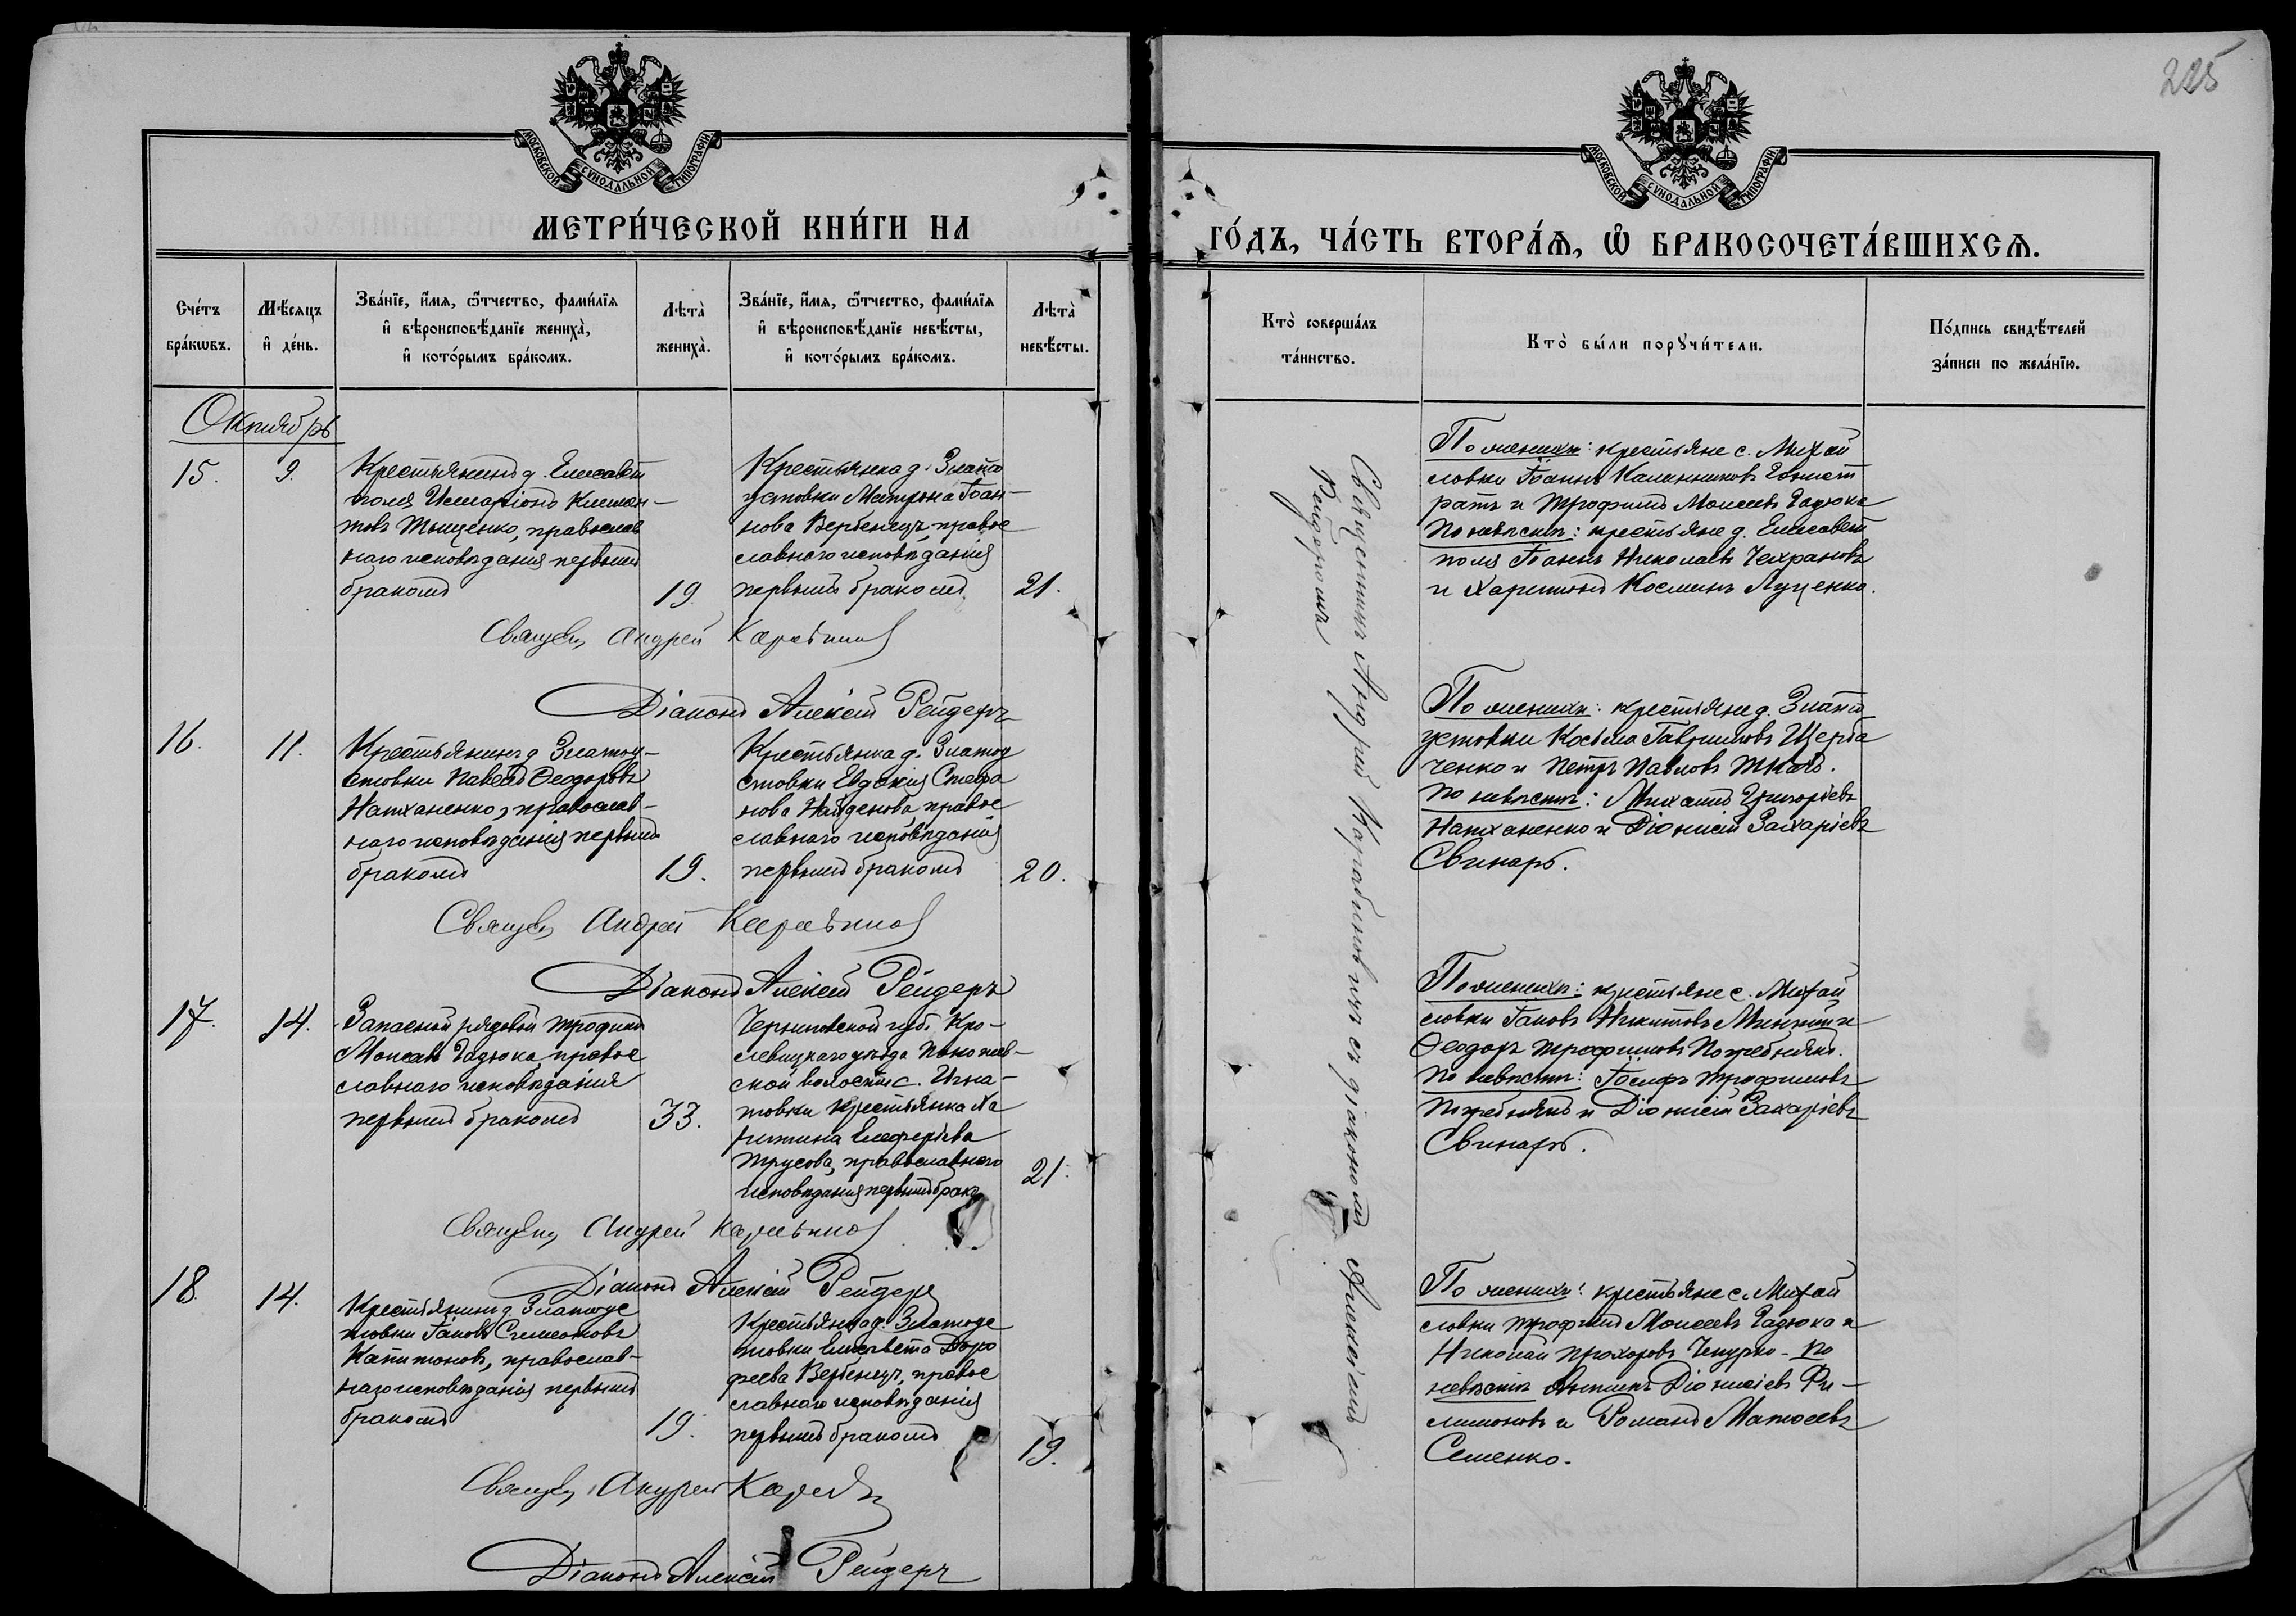 225
МОСКОВСКОЙ СѴНОДАЛЬНОЙ ТИПОГРАФІИ
МОСКОВСКОЙ СѴНОДАЛЬНОЙ ТИПОГРАФІИ
МЕТРИ́ЧЕСКОЙ КНИ́ГИ НА
ГО́ДЪ, ЧА́СТЬ ВТОРА́Ѧ, Ѽ БРАКОСОЧЕТА́ВШИХСѦ.
Сче́тъ
бра́кѡвъ.
Мѣ́сѧцъ
и҆ де́нь.
Зва́нїе, и҆́мѧ, ѻ҆́тчество, фами́лїѧ
и҆ вѣроисповѣ́данїе жениха̀,
и҆ кото́рымъ бра́комъ.
Лѣта̀
жениха̀.
Зва́нїе, и҆́мѧ, ѻ҆́тчество, фами́лїѧ
и҆ вѣроисповѣ́данїе невѣ́сты,
и҆ кото́рымъ бра́комъ.
Лѣта̀
невѣ́сты.
Кто̀ соверша́лъ
та́инство.
Кто̀ бы́ли порꙋчи́тели.
По́дпись свидѣ́телей
за́писи по жела́нїю.
Октябрь
15.
9.
Крестьянинъ д. Елисавет
поля Иларіонъ Климен-
товъ Тищенко, православ
наго исповѣданія первымъ
бракомъ
19.
Крестьянка д. Злато
устовки Матрона Іоан-
нова Вербенецъ, право
славнаго исповѣданія
первымъ бракомъ
21.
По женихѣ: крестьяне с. Михай
ловки Іоаннъ Калинниковъ
и Трофимъ Моисеевъ Гадюка
По невѣстѣ: крестьяне д. Елисавет
поля Іоаннъ Николаевъ Чехрановъ
и Харитонъ Космин Луценко.
Священ Андрей Карабинов
Діаконъ Алексій Рейдеръ
Священникъ Андрей Карабиновичъ съ діакономъ Алексіемъ
Рейдеромъ
16.
11.
Крестьянинъ д Златоу-
стовки Павелъ Ѳеодоровъ
Натханенко, православ-
наго исповѣданія первымъ
бракомъ
19.
Крестьянка д. Златоу
стовки Евдокія Стефа
нова Найденова право
славнаго исповѣданія
первымъ бракомъ
20.
По женихѣ: крестьяне д. Злато
устовки Косьма Гавриловъ Щерба
ченко и Петръ Павловъ Ткачъ.
По невѣстѣ: Михаилъ Григоріевъ
Натханенко и Діонисій Захаріевъ
Свинарь.
Священ Андрей Карабинов
Діаконъ Алексій Рейдеръ
17.
14.
Запасной рядовой Трофимъ
Моисеевъ Гадюка, право
славнаго исповѣданія
первымъ бракомъ
33.
Черниговской губ. Кро-
левецкаго уѣзда
ской волости с. Игна-
товки крестьянка Ха
ритина Елевферіева
Трусова, православнаго
исповѣданія первымъ брак.
21.
По женихѣ: крестьяне с. Михай
ловки Іаковъ Никитовъ и
Ѳеодоръ Трофимовъ Погребнякъ.
По невѣстѣ: Іосифъ Трофимовъ
Погребнякъ и Діонисій Захаріевъ
Свинарь.
Священ Андрей Карабинов
Діаконъ Алексій Рейдеръ
18.
14.
Крестьянинъ д. Златоус
товки Іаковъ Симеоновъ
Капитоновъ, православ-
наго исповѣданія первымъ
бракомъ
19.
Крестьянка д. Златоус
товки Елисавета Доро
феева Вербенецъ, право
славнаго исповѣданія
первымъ бракомъ
19.
По женихѣ: крестьяне с. Михай
ловки Трофимъ Моисеевъ Гадюка и
Николай Прохоровъ Чепурко - По
невѣстѣ Діонисіевъ Фи-
лимоновъ и Романъ Матвеевъ
Семенко.
Священ Андрей Караб
Діаконъ Алексій Рейдеръ